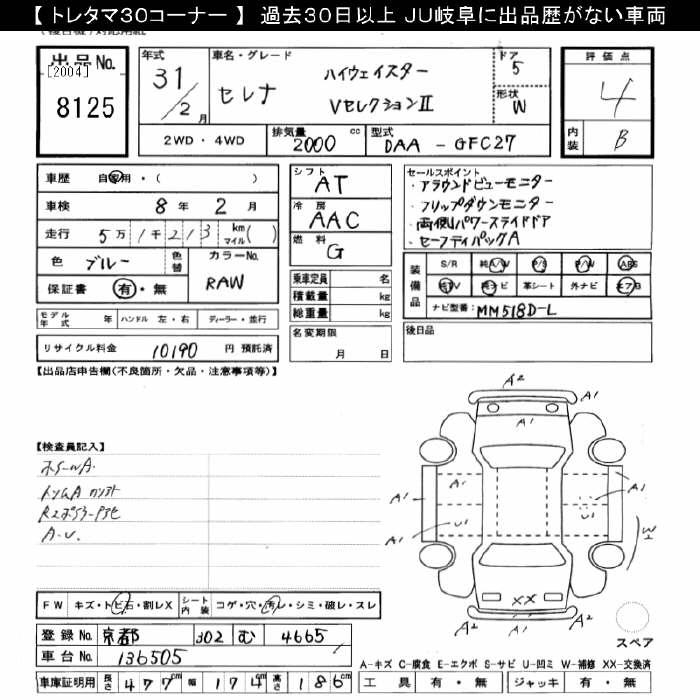 【 トレタマ30コーナー 】 過去30日以上 JU岐阜に出品歴がない車両
出品No.
[2004]
8125
年式
31/2月
車名・グレード
セレナ
ハイウェイスター
VセレクションⅡ
ドア
5
形状
W
評価点
4
内装
B
2WD・4WD
排気量
2000 cc
型式
DAA - GFC27
車歴 自家用・( )
車検 8年 2月
走行 5万1千213 km マイル( )
色 ブルー 色替
カラーNo. RAW
保証書 有・無
シフト AT
冷房 AAC
燃料 G
乗車定員 名
積載量 kg
総重量 kg
セールスポイント
・アラウンドビューモニター
・フリップダウンモニター
・両側パワースライドドア
・セーフティパックA
装備品
S/R 純A/W P/S P/W ABS
純TV 純ナビ 革シート 外ナビ エアB
ナビ型番: MM518D-L
モデル年式 年 ハンドル 左・右 ディーラー・並行
リサイクル料金 10190 円 預託済
名変期限
月 日
後日品
【出品店申告欄(不良箇所・欠品・注意事項等)】
A2
A1
A1
【検査員記入】
A1
A1
A1
U1
U1
A1
W2
XX
A2
A1
A2
FW キズ・トビ石・割レX シート内装 コゲ・穴・汚レ・シミ・破レ・スレ
スペア
登録No. 京都 302 む 4665
車台No. 136505
A-キズ C-腐食 E-エクボ S-サビ U-凹ミ W-補修 XX-交換済
車庫証明用 長さ 477cm 幅 174cm 高さ 186cm
工具 有・無 ジャッキ 有・無